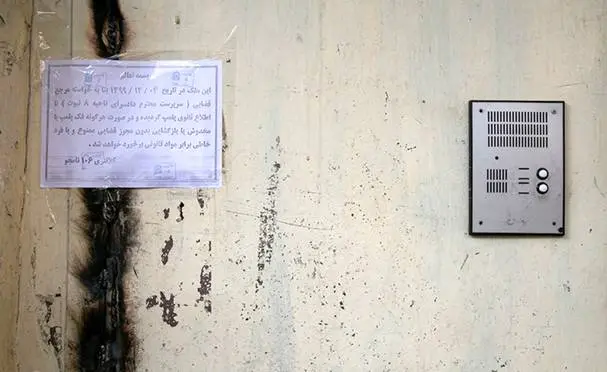 بسمه تعالی
این ملک در تاریخ ۱۳۹۹/۱۲/۰۴ بنا به خواسته مرجع
قضایی ( سرپرست محترم دادسرای ناحیه ۸ تهران ) تا
اطلاع ثانوی پلمپ گردیده و در صورت هرگونه فک پلمپ یا
مخدوش یا بازگشایی بدون مجوز قضایی ممنوع و با فرد
خاطی برابر مواد قانونی برخورد خواهد شد .
کلانتری ۱۰۶ نامجو